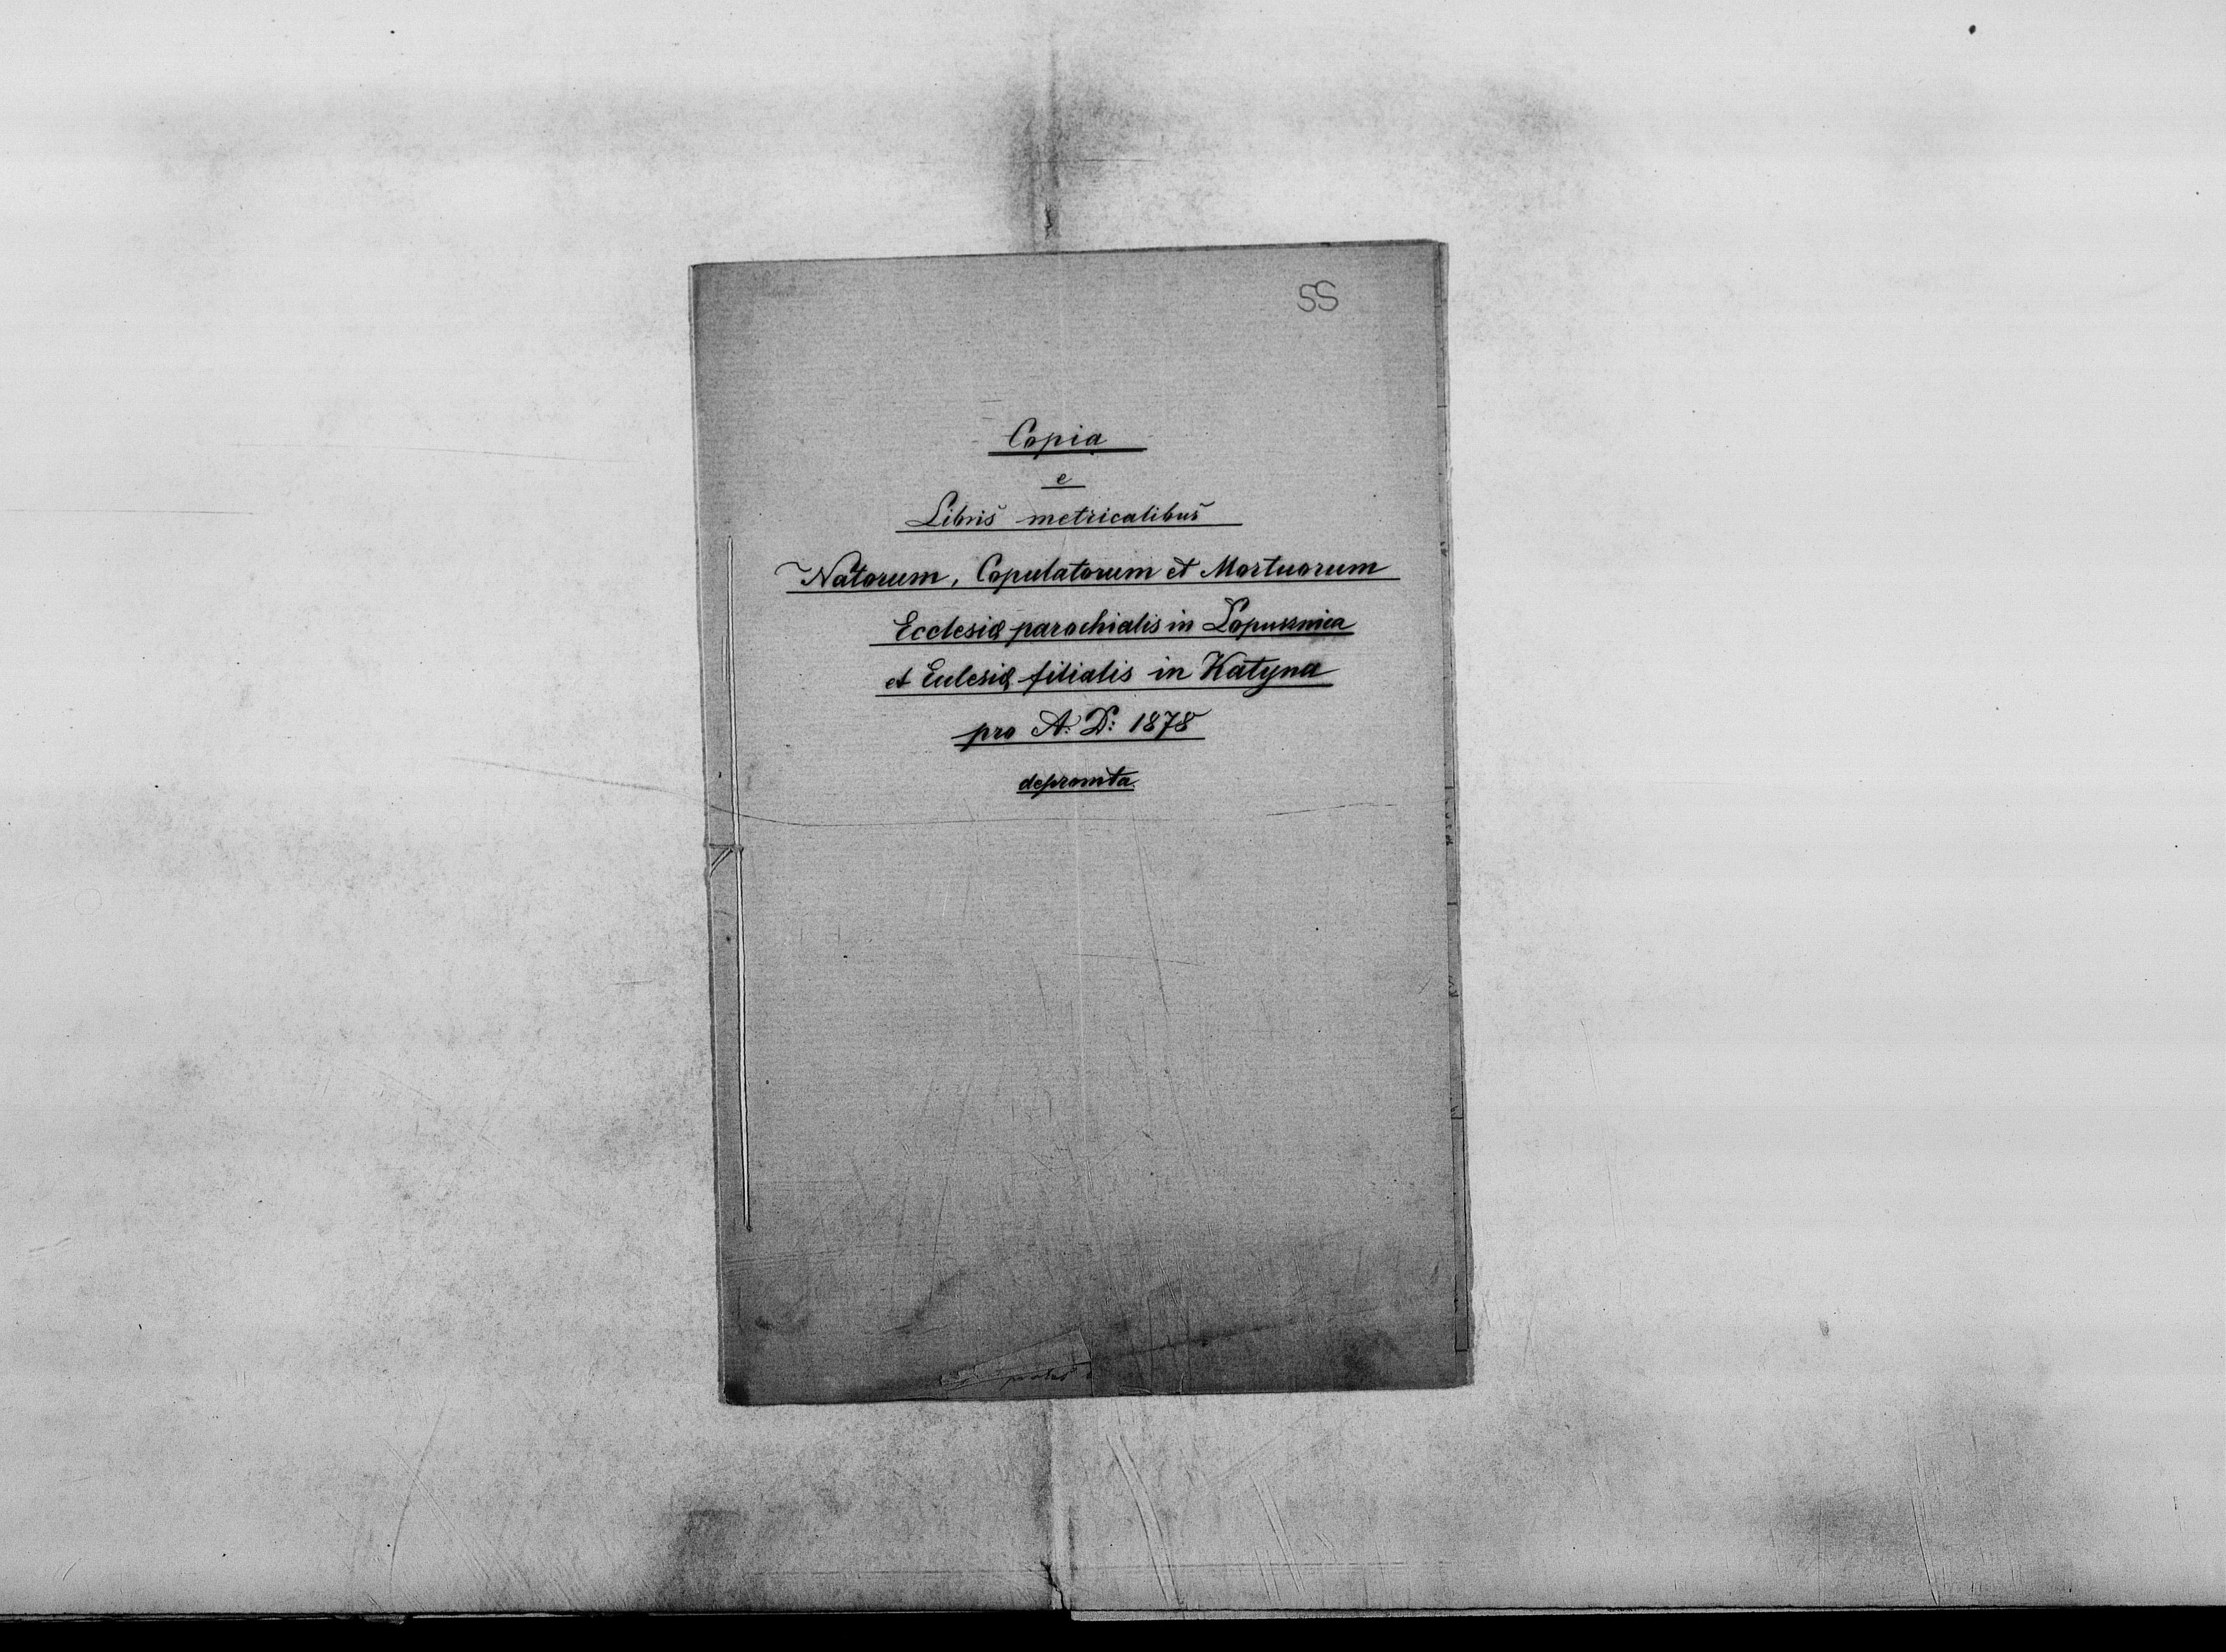 55
Copia
e
Libris metricalibus
Natorum, Copulatorum et Mortuorum
Ecclesiæ parochialis in Lopusznica
et Eclesiæ filialis in Katyna
pro A: D: 1878
depromta